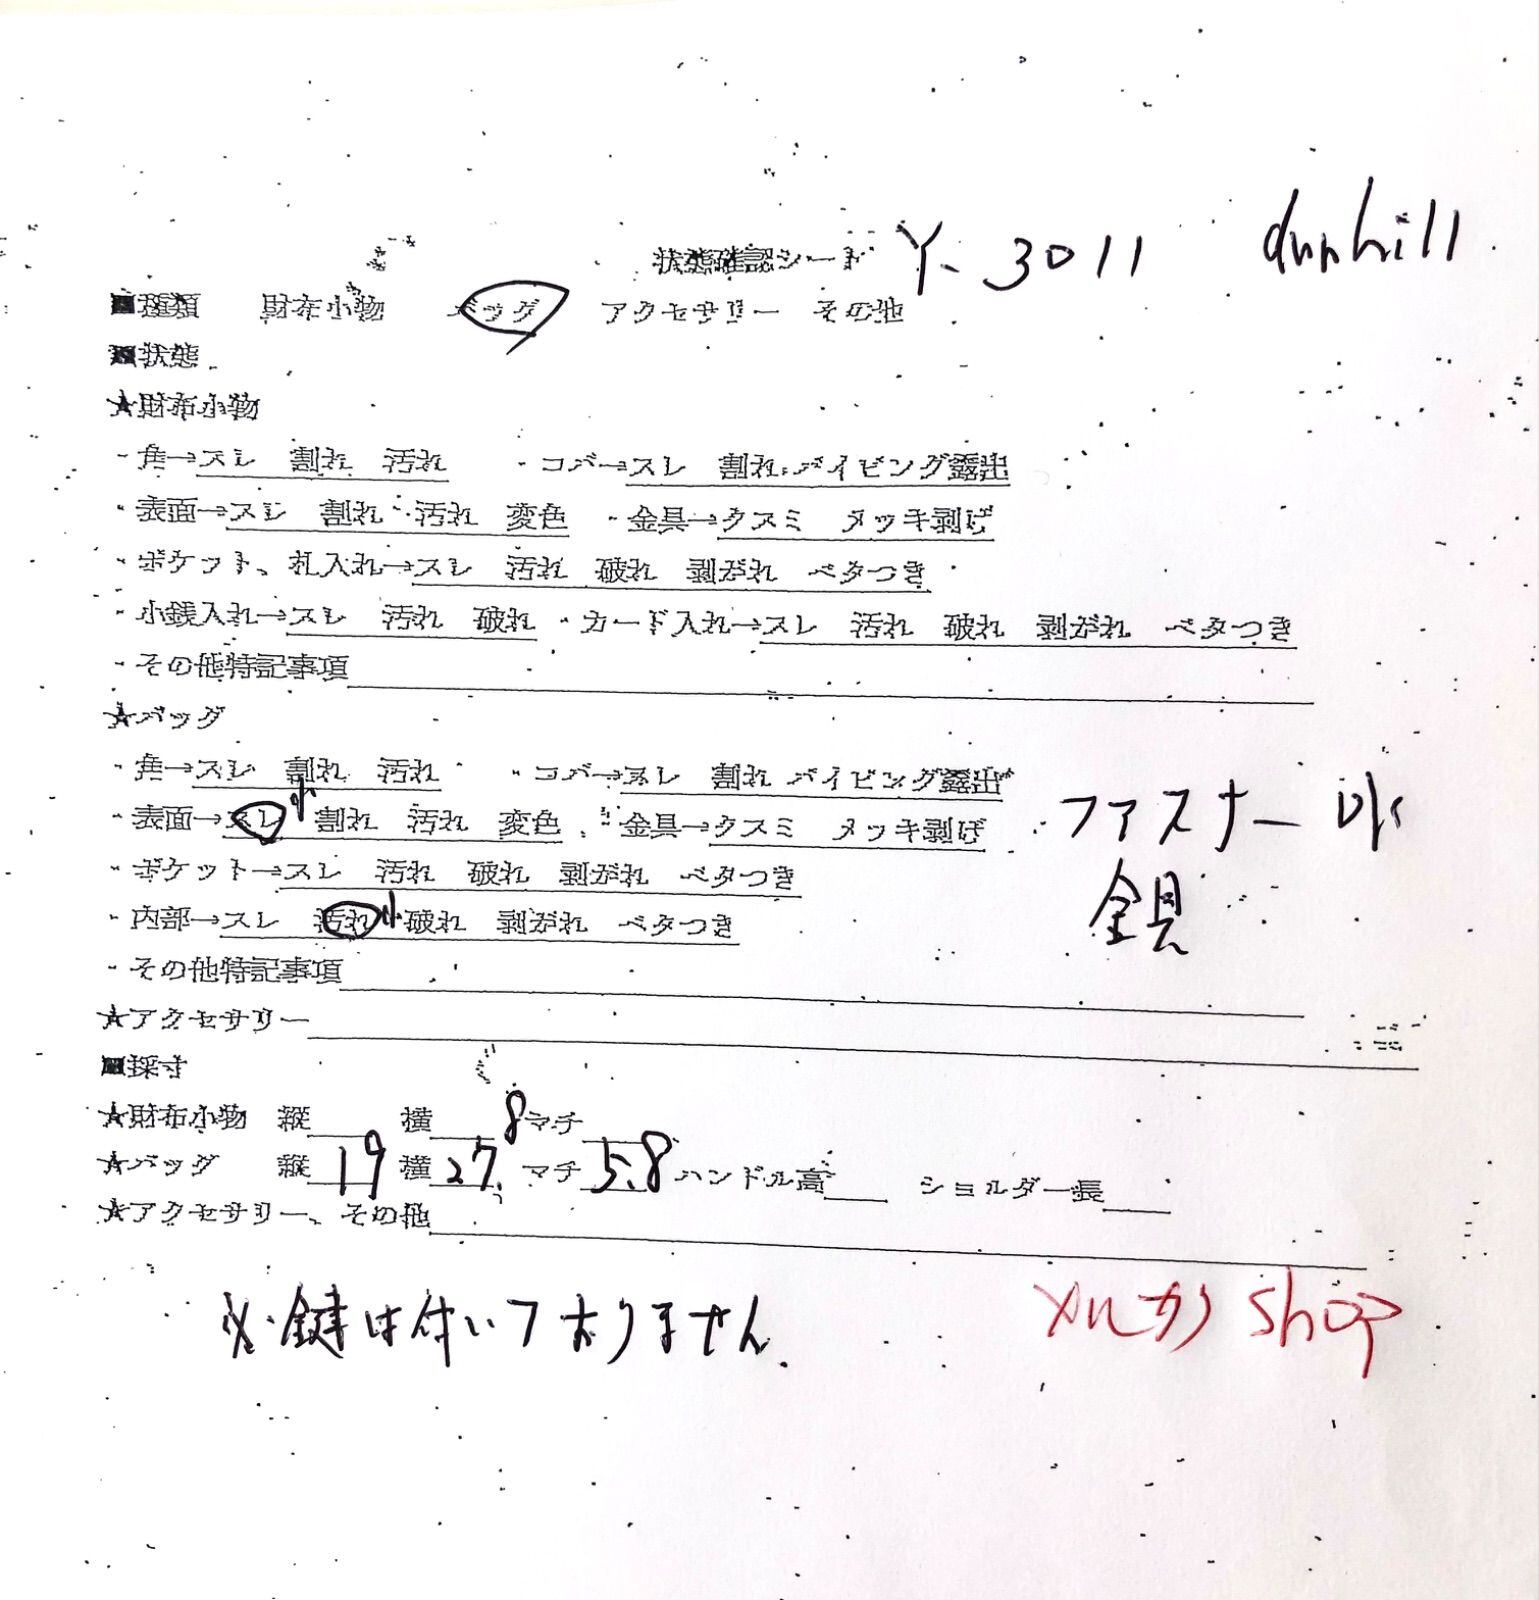 状態確認シート Y-3011 dunhill
■種類 財布小物 バッグ アクセサリー その他
■状態
★財布小物
・角→スレ 割れ 汚れ ・コバ→スレ 割れ パイピング露出
・表面→スレ 割れ 汚れ 変色 ・金具→クスミ メッキ剥げ
・ポケット、札入れ→スレ 汚れ 破れ 剥がれ ベタつき
・小銭入れ→スレ 汚れ 破れ ・カード入れ→スレ 汚れ 破れ 剥がれ ベタつき
・その他特記事項
★バッグ
・角→スレ 割れ 汚れ ・コバ→スレ 割れ パイピング露出
・表面→スレ 小 割れ 汚れ 変色 ・金具→クスミ メッキ剥げ ファスナー
金具
・ポケット→スレ 汚れ 破れ 剥がれ ベタつき
・内部→スレ 汚れ 小 破れ 剥がれ ベタつき
・その他特記事項
★アクセサリー
■採寸
★財布小物 縦 横 マチ
★バッグ 縦 19 横 27.8 マチ 5.8 ハンドル高 ショルダー長
★アクセサリー、その他
※鍵は付いておりません.
メルカリ shop